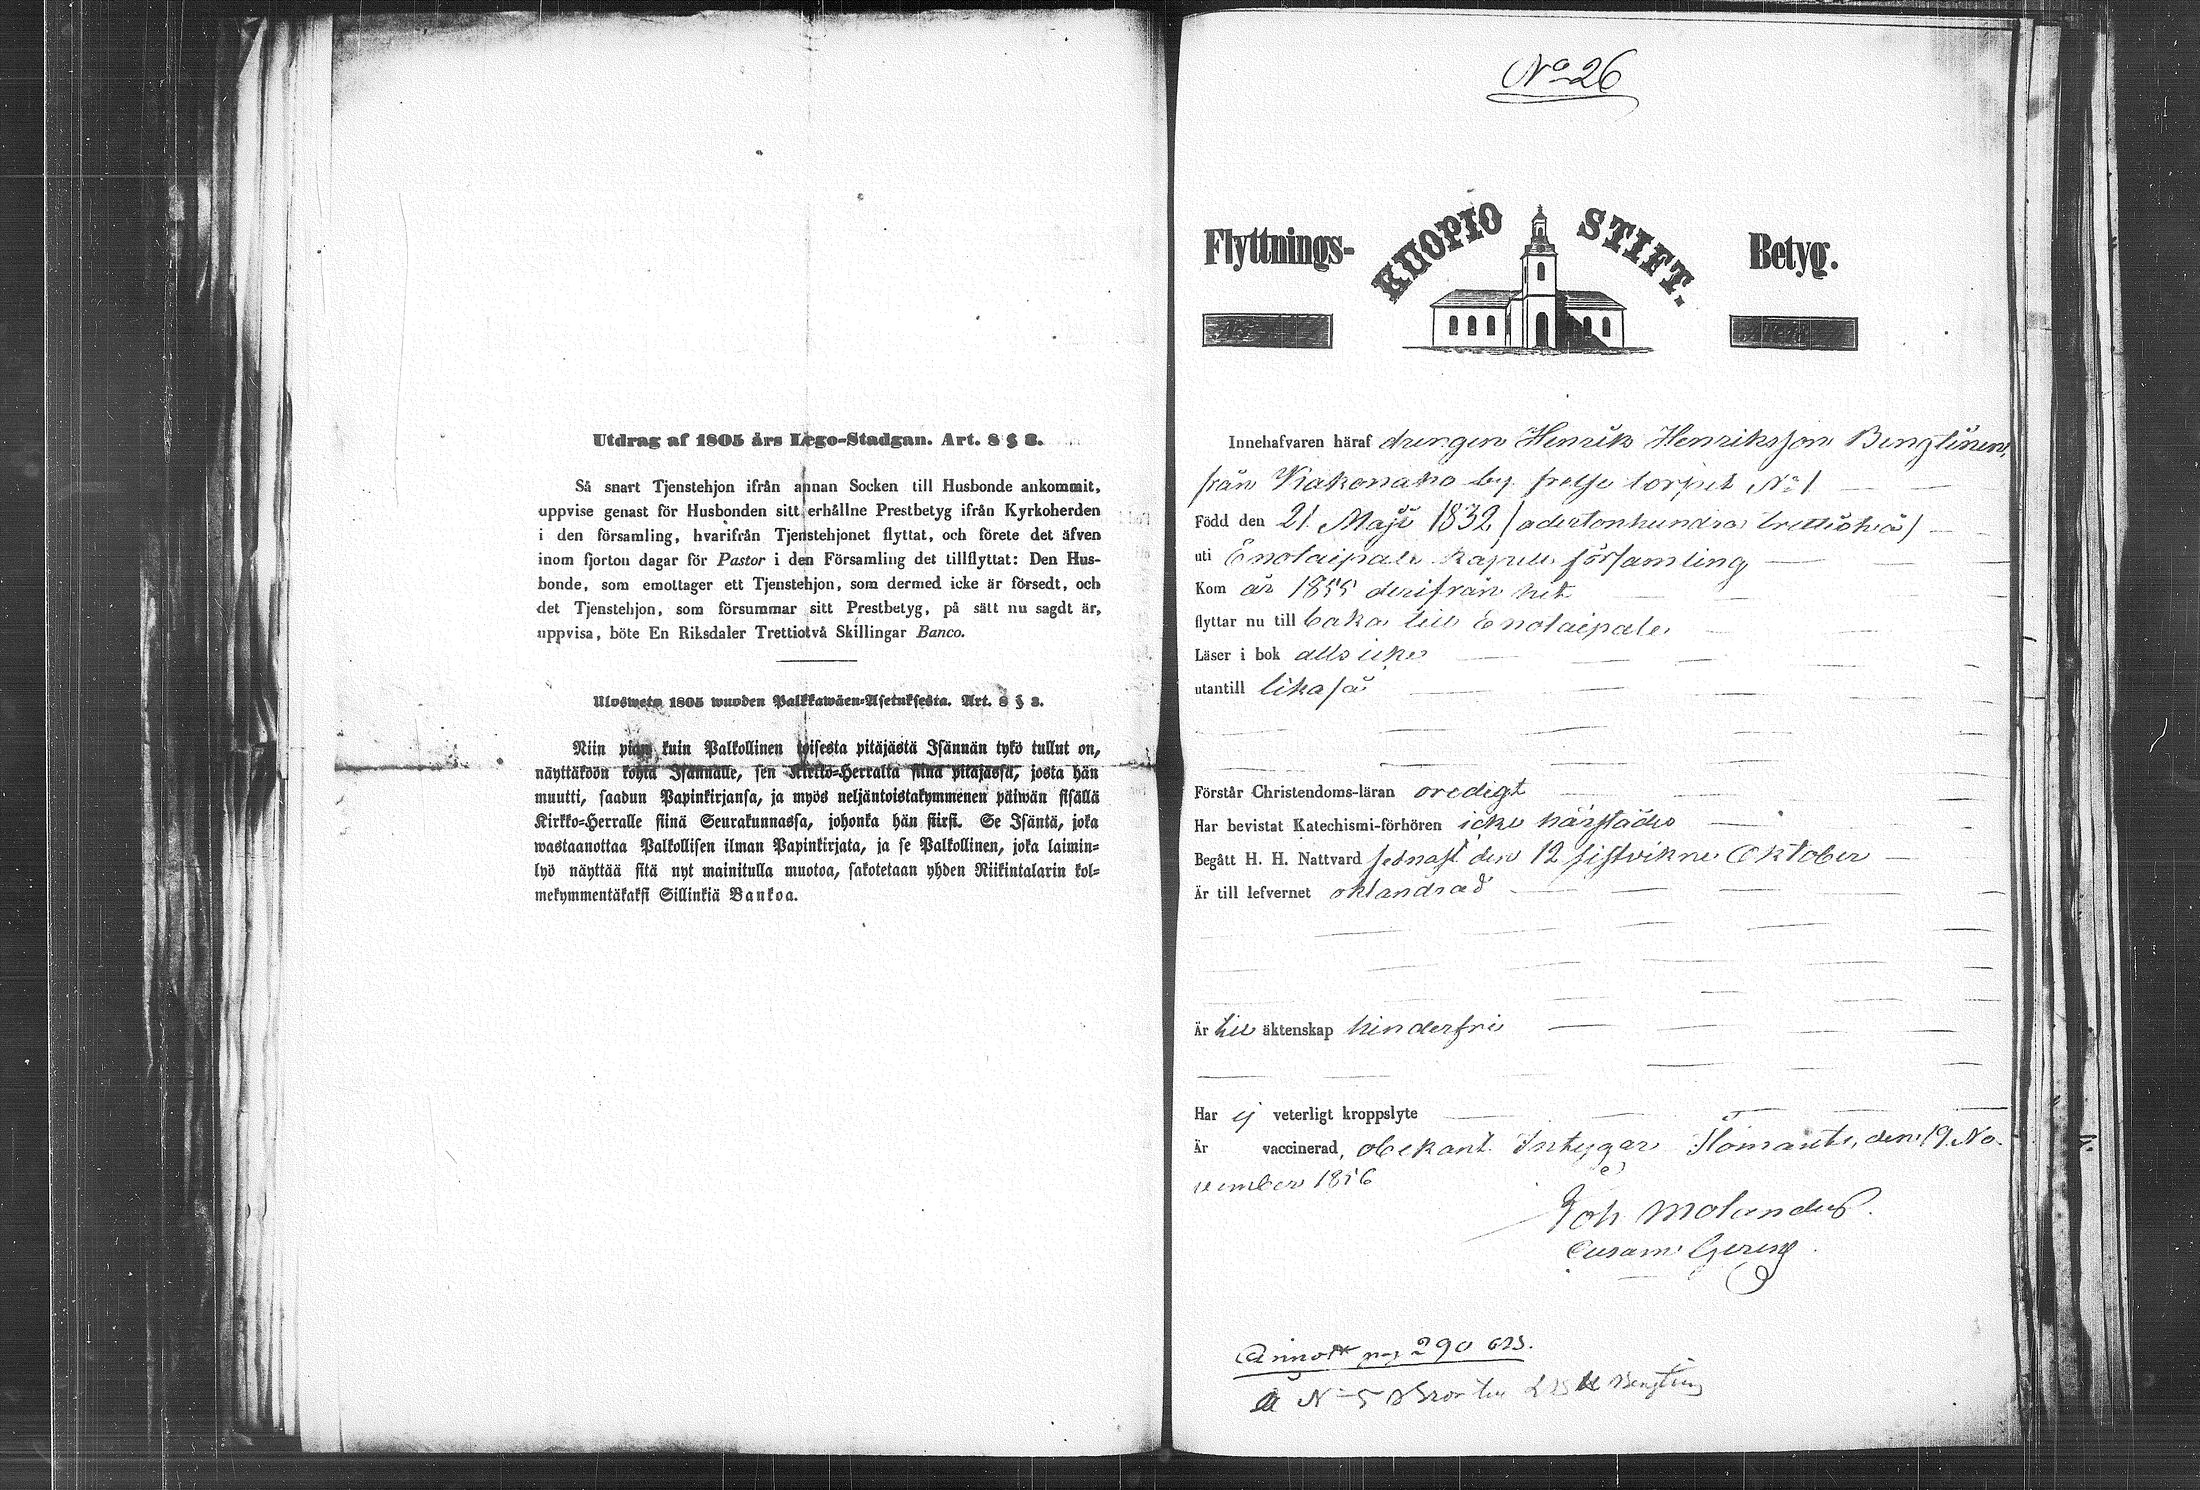 Utdrag af 1805 års Lego-Stadgan. Art. 8 § 3.
Så snart Tjenstehjon ifrån annan Socken till Husbonde ankommit,
uppvise genast för Husbonden sitt erhållne Prestbetyg ifrån Kyrkoherden
i den församling, hvarifrån Tjenstehjonet flyttat, och förete det äfven
inom fjorton dagar för Pastor i den Församling det tillflyttat: Den Hus-
bonde, som emottager ett Tjenstehjon, som dermed icke är försedt, och
det Tjenstehjon, som försummar sitt Prestbetyg, på sätt nu sagdt är,
uppvisa, böte En Riksdaler Trettiotvå Skillingar Banco.
Ulosweto 1805 wuoden Palkkawäen-Asetuksesta. Art. 8 § 3.
Niin pian kuin Palkollinen toisesta pitäjästä Isännän tykö tullut on,
näyttäköön kohta Isännälle, sen Kirkko-Herralta siinä pitäjässä, josta hän
muutti, saadun Papinkirjansa, ja myös neljäntoistakymmenen päiwän sisällä
Kirkko-Herralle siinä Seurakunnassa, johonka hän siirsi. Se Isäntä, joka
wastaanottaa Palkollisen ilman Papinkirjata, ja se Palkollinen, joka laimin-
lyö näyttää sitä nyt mainitulla muotoa, sakotetaan yhden Riikintalarin kol-
mekymmentäkaksi Sillinkiä Bankoa.
No 26
Flyttnings- KUOPIO STIFT. Betyg.
Innehafvaren häraf drengen Henrik Henriksson Bengtinen,
från Kakonaho by frelse torpet No 1
Född den 21 Maji 1832 /adertonhundra trettiotvå/
uti Enolaipale kapell församling
Kom år 1855 derifrån hit
flyttar nu till baka till Enolaipale
Läser i bok alls icke
utantill likaså
Förstår Christendoms-läran oredigt
Har bevistat Katechismi-förhören icke härstädes
Begått H. H. Nattvard sednast den 12 sistvikne Oktober
Är till lefvernet oklandrad
Är till äktenskap hinderfri
Har ej veterligt kroppslyte
Är vaccinerad, obekant. Intygar Ilomants, den 19 No-
vember 1856
Joh Molander.
Annot pag 290
No 5